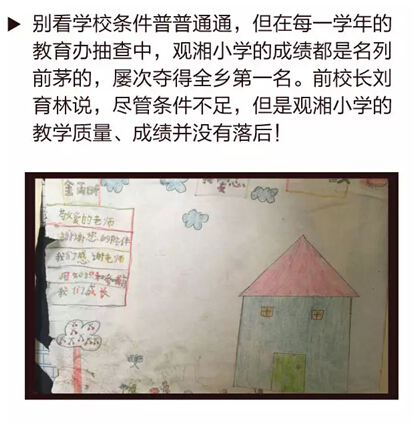 别看学校条件普普通通，但在每一学年的
教育办抽查中，观湘小学的成绩都是名列
前茅的，屡次夺得全乡第一名。前校长刘
育林说，尽管条件不足，但是观湘小学的
教学质量、成绩并没有落后！
敬爱的老师
的陪伴
我们感谢老师
用知识和
我们成长